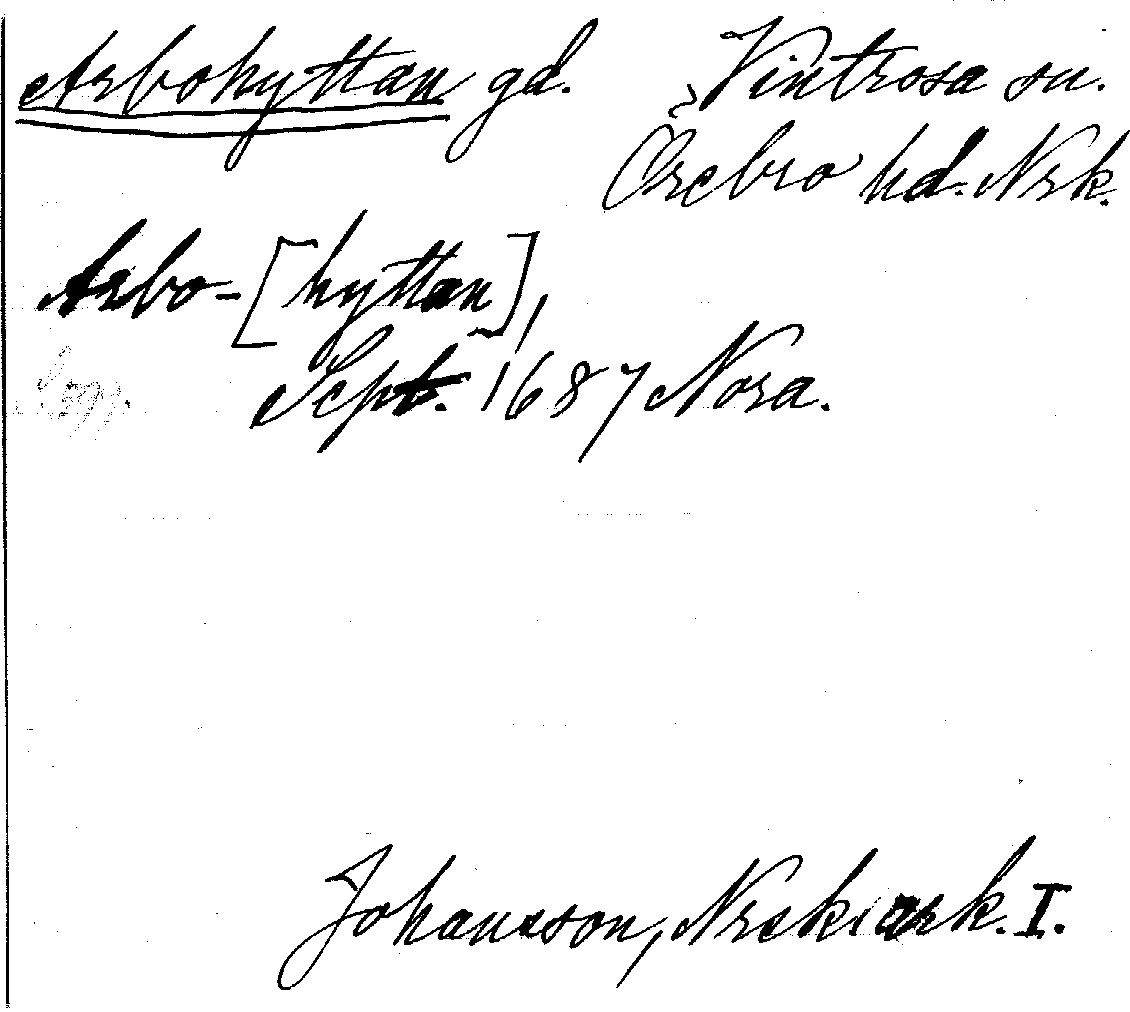 Arbohyttan gd. Vintrosa sn.
Örebro hd. Nrk.
Arbo-[hyttan],
Sept. 1687 Nora.
Johansson, Nrsk. ark. I.